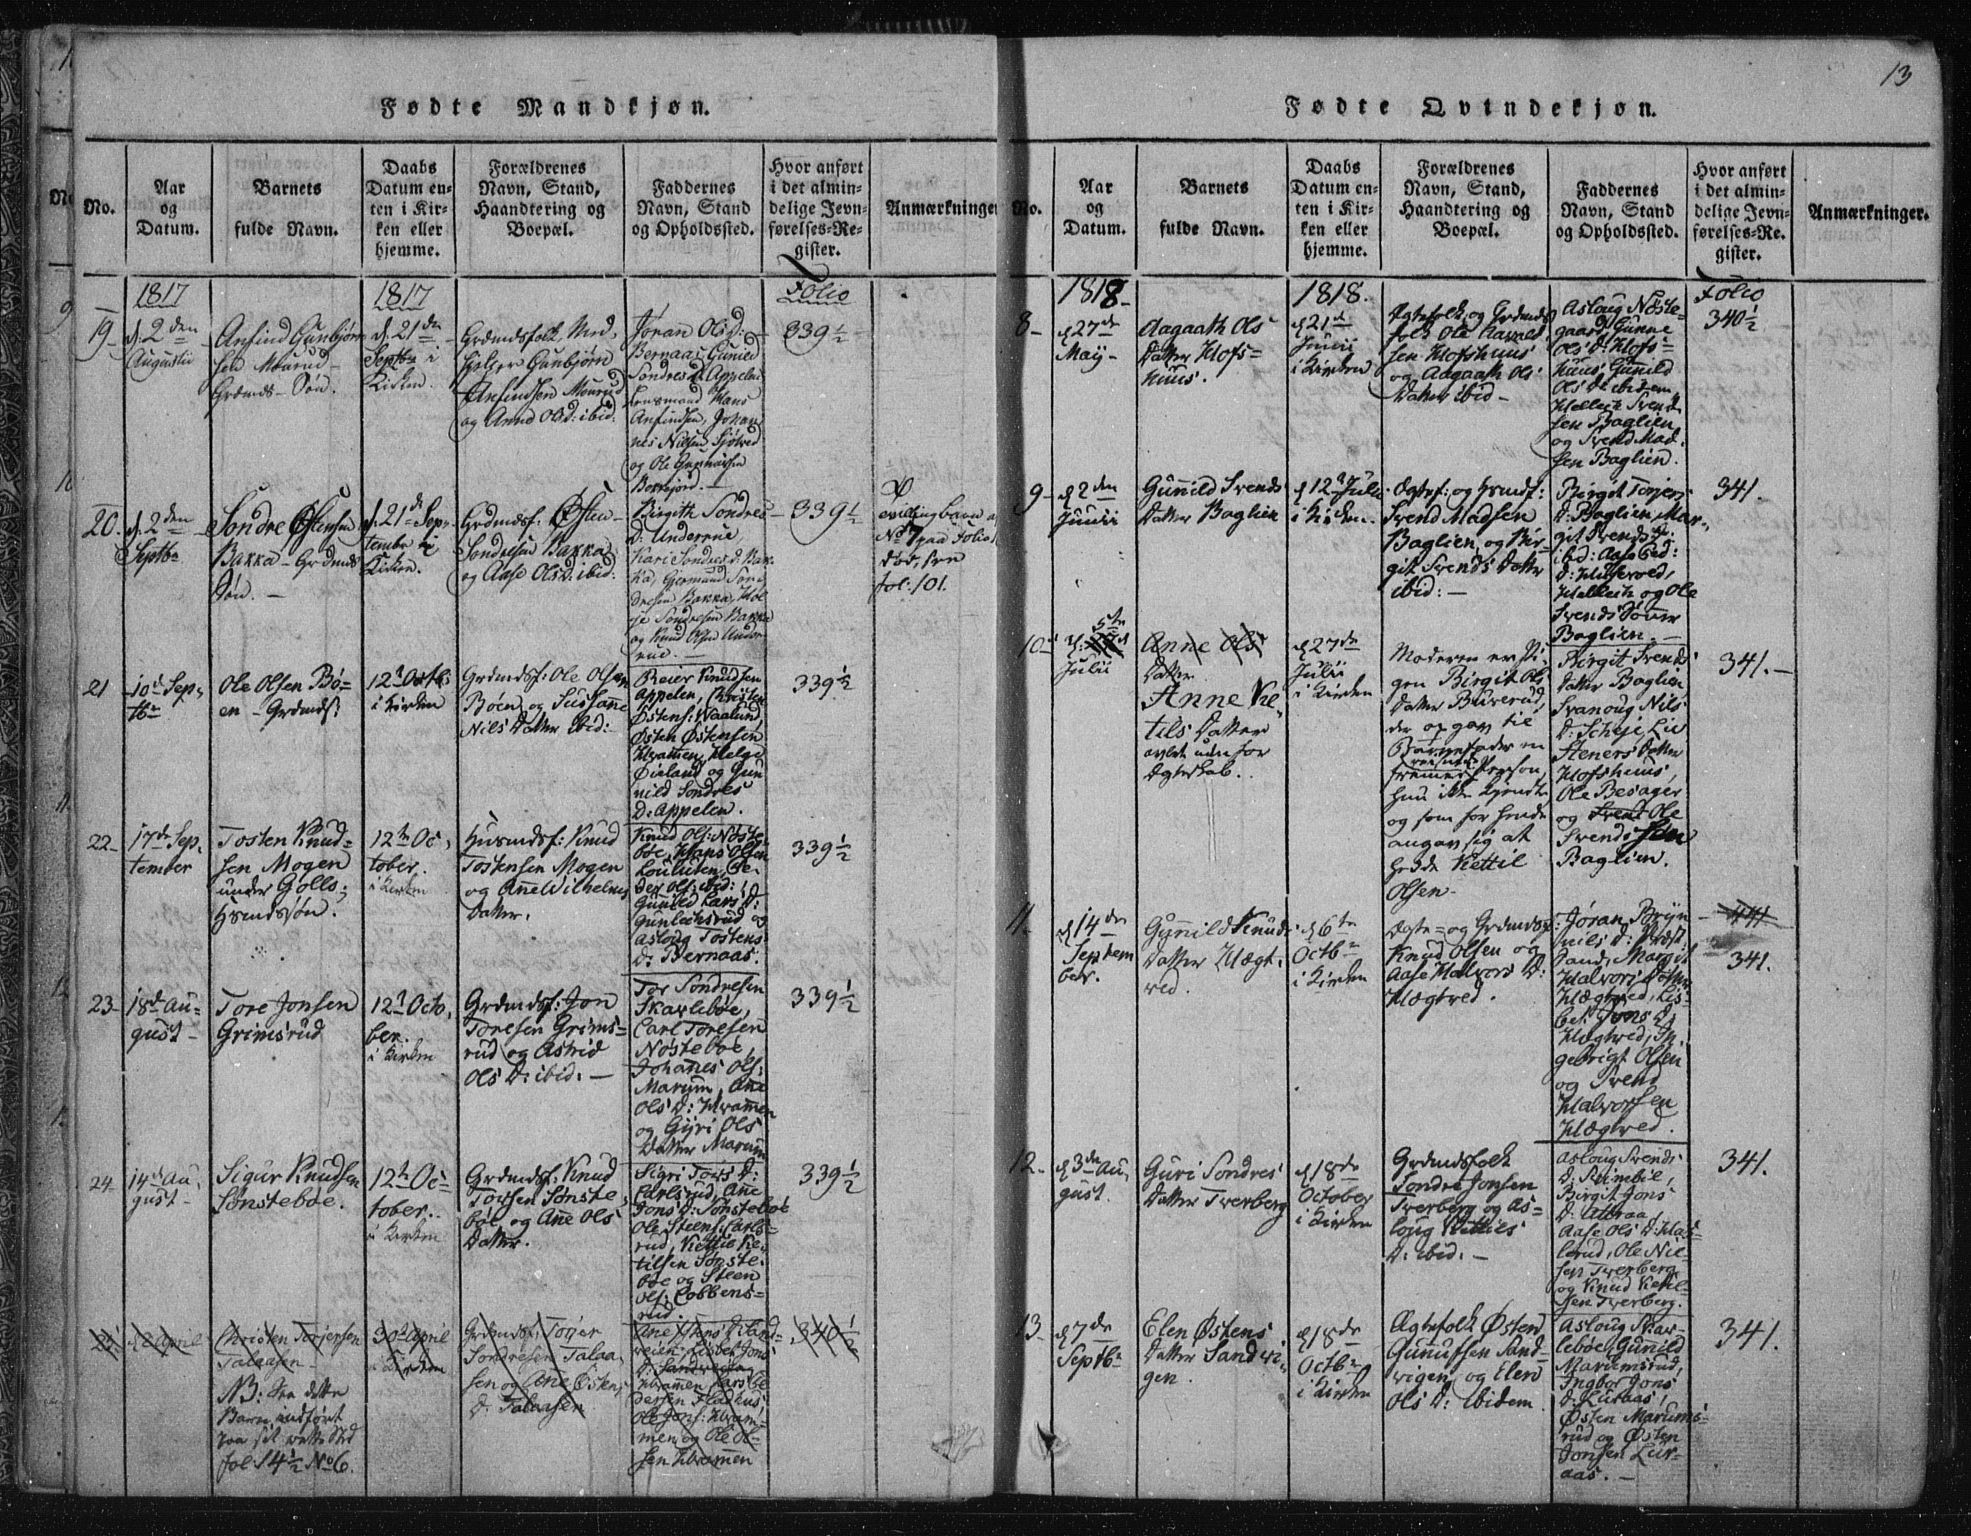 13
Fødte Mandkjøn.
No.
Aar
og
Datum.
Barnets
fulde Navn.
Daabs
Datum en-
ten i Kir-
ken eller
hjemme.
Forældrenes
Navn, Stand,
Haandtering og
Boepæl.
Faddernes
Navn, Stand
og Opholdssted.
Hvor anført
i det almin-
delige Jevn-
førelses-Re-
gister.
Anmærkninger
1817
1817
Folio
19
d. 2den
Augustii
Anfind Gunbjørn
sen Mourud
Grdmds- Søn.
d. 21de
Septbr i
Kirken.
Grdmdsfolk
Gunbjørn
Anfindsen Mourud
og Anne Olsd: ibid:
Jøran Olsd:
Bernaas, Gunild
Sondresd. Appelen
Lensmand Hans
Anfindsen, Johan-
nes Nielsen
og Ole
339½
20.
d. 2den
Septbr
Søndre Østensen
Bakka - Grdmds
Søn. -
d. 21de Sep-
tembr i
Kirken.
Grdmdsf. Østen
Sondresen Bakka
og Aase Olsd: ibid:
Birgith Sondres
D: Underrue,
Kari Sondresd. Bak-
ka, Gjermund Son-
dresen Bakka, Hol-
je Sondresen Bakka
og Knud Olsen Under-
rue. -
339½
No 7 paa Folio
død, see
fol. 101.
21
10d Sep-
tbr
Ole Olsen Bø-
en - Grdmds:
12d Octb.
i Kirken
Grdmdsf: Ole Olsen
Bøen og Sussane
Nils Datter ibid:
Reier Knudsen
Appelen, Christen
Østens: Waalund,
Østen Østensen
Kramen, Helge
Øieland og Gun
nild Sondres
D: Appelen.
339½
22
17de Sep-
tember
Tosten Knud-
sen Mogen
under Golls-
Hsmdssøn.
12te Oc-
tober.
i Kirken
Husmdsf: Knud
Tostensen Mogen
og Ane Wilhelms
Datter.
Knud Ols: Nøste-
bøe, Hans Olsen
Louluten, Pe-
der Ols: ibid:,
Gunild Lars D:
Gunleiksrud og
Asloug Tostens
D: Bernaas.
339½
23
18d Au-
gust
Tore Jonsen
Grimsrud
12d Octo-
ber.
i Kirken
Grdmdsf: Jon
Toresen Grims-
rud og Astrid
Ols D: ibid: -
Tor Sondresen
Skarleboe,
Carl Toresen
Nøsteboe,
Johanes Ols:
Marum, Ane
Ols D: Kramen
og Gijri Ols
Datter Marum
339½
24
14d Au-
gust
Sigur Knudsen
Sønsteboe.
12te Oc-
tober.
i Kirken
Grdmdsf: Knud
Torsen Sønste-
bøe og Ane Ols
Datter.
Sigri Tors D:
Carlsrud, Ane
Jons D: Sønsteboe
Ole Steens: Carls-
rud, Kettil Ke-
tilsen Sønste-
boe og Steen
Ols: Cobbens-
rud.
339½
25
d 2 April
Christen Torjersen
Talaasen
NB: See dette
Barn indført
paa sit rette Sted
fol 14½ No 6.
30te April
i Kirken
Grdmdsf: Torjer
Sondresen Talaa-
sen og Ane Østens
D: Talaasen
340½
Fødte Qvindekjøn.
No.
Aar
og
Datum.
Barnets
fulde Navn.
Daabs
Datum en-
ten i Kir-
ken eller
hjemme.
Forældrenes
Navn, Stand,
Haandtering og
Boepæl.
Faddernes
Navn, Stand
og Opholdssted.
Hvor anført
i det almin-
delige Jevn-
førelses-Re-
gister.
Anmærkninger.
1818
1818.
Folio
8
d 27de
Maij
Aagaath Ols
Datter Hofs-
huus.
d 21d
Junii
i Kirken
Ægtefolk og Grdmds
folk Ole Aavald
sen Hofshuus
og Aagaath Ols
Datter ibid
Asloug Nøste-
gaard, Gunne
Ols D: Hofs-
huus, Gunild
Ols D: ibidem
Helleik Svend
sen Baglien
og Svend Mad-
sen Baglien.
340½
9
d 2den
Junii
Gunild Svends
Datter Baglien
d 12 Julii
i Kirken.
Ægtef: og Hsmdsf:
Svend Madsen
Baglien, og Bir-
git Svends Datter
ibid: -
Birgit Torjers
D: Baglien, Mar-
git Svends D:
ibid:
Helleik og Ole
Svends Sønner
Baglien. -
341.
10
d. 5te
Julii
Anne Ols
Datter
Anne Ke-
tils Datter
avlet uden for
Ægteskab.
d 27de
Julii
i Kirken
Moderen er Pi-
gen Birgit Ols
Datter Buverud,
der opgav til
Barnefader en
fremmed reisende Person,
hun ikke kjendte
og som for hende
angav sig at
hedde Kettil
Olsen.
Birgit Svends
Datter Baglien,
Svanoug Nils
D: Lie
Steners Datter
Hofshuus,
Ole Besager
og Svend Ole
Svends Sen
Baglien.
341.
11.
d 14de
Septem
ber.
Gunild Knuds
Datter Hægt-
ved.
d 6te
Octbr
i Kirken
Ægte- og Grdmdsf:
Knud Olsen og
Aase Halvors D:
Hægtved.
Jøran Bryn
nils D: Præst-
sand, Margit
Halvors Datter
Hægtved, Lis-
bet Jons D.
Hægtved, In-
gebrigt Olsen
og Svend
Halvorsen
Hægtved.
341
341.
12.
d 3den Au-
gust.
Guri Sondres
Datter Tverberg
d 18de
October
i Kirken
Grdmdsfolk
Sondre Jonsen
Tverberg og As-
loug Kettils
D: ibid: -
Asloug Svends
D:
Birgit Jons
D:
Aase Ols D:
Ole Nil-
sen Tverberg
og Knud Ketil-
sen Tverberg.
341.
13
d 7de
Septbr
Elen Østens
Datter Sandvi-
gen.
d 18de
Octbr
i Kirken
Ægtefolk Østen
Gunulfsen Sand-
vigen, og Elen
Ols D: ibidem
Asloug Skar-
lebøe, Gunild
Marumsrud,
Ingbor Jons
D: Luraas,
Østen Marums-
rud og Østen
Jonsen Lur-
aas. -
341.